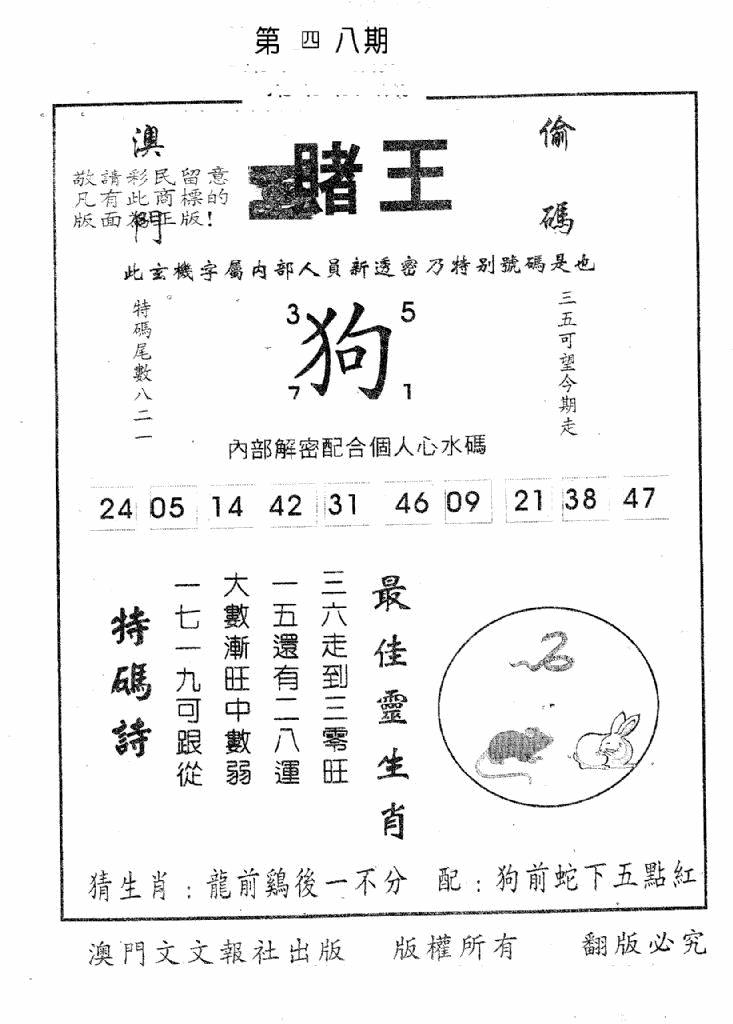 第四八期
澳門
敬請彩民留意
凡有此商標的
版面為正版!
賭王
偷碼
此玄機字屬内部人員新透密乃特别號碼是也。
特碼尾數八二一
3 5
狗
7 1
三五可望今期走
內部解密配合個人心水碼
24 05 14 42 31 46 09 21 38 47
最佳靈生肖
三六走到三零旺
一五還有二八運
大數漸旺中數弱
一七一九可跟從
特碼詩
猜生肖：龍前鷄後一不分 配：狗前蛇下五點紅
澳門文文報社出版 版權所有 翻版必究